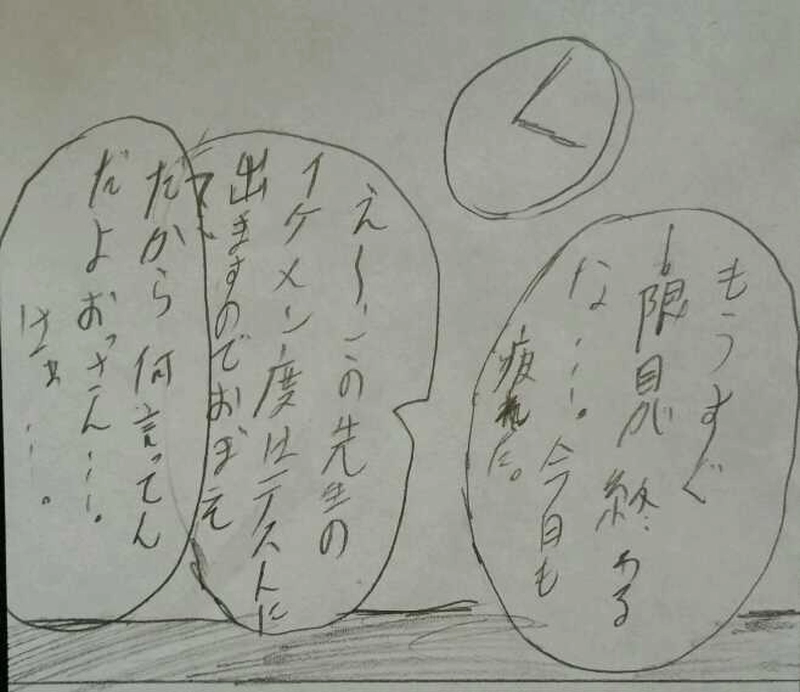 もうすぐ
6限目が終わる
な…。今日も
疲れた。
え〜、この先生の
イケメン度はテストに
出ますのでおぼえ
て
だから何言ってん
だよおっさん…。
はぁ…。